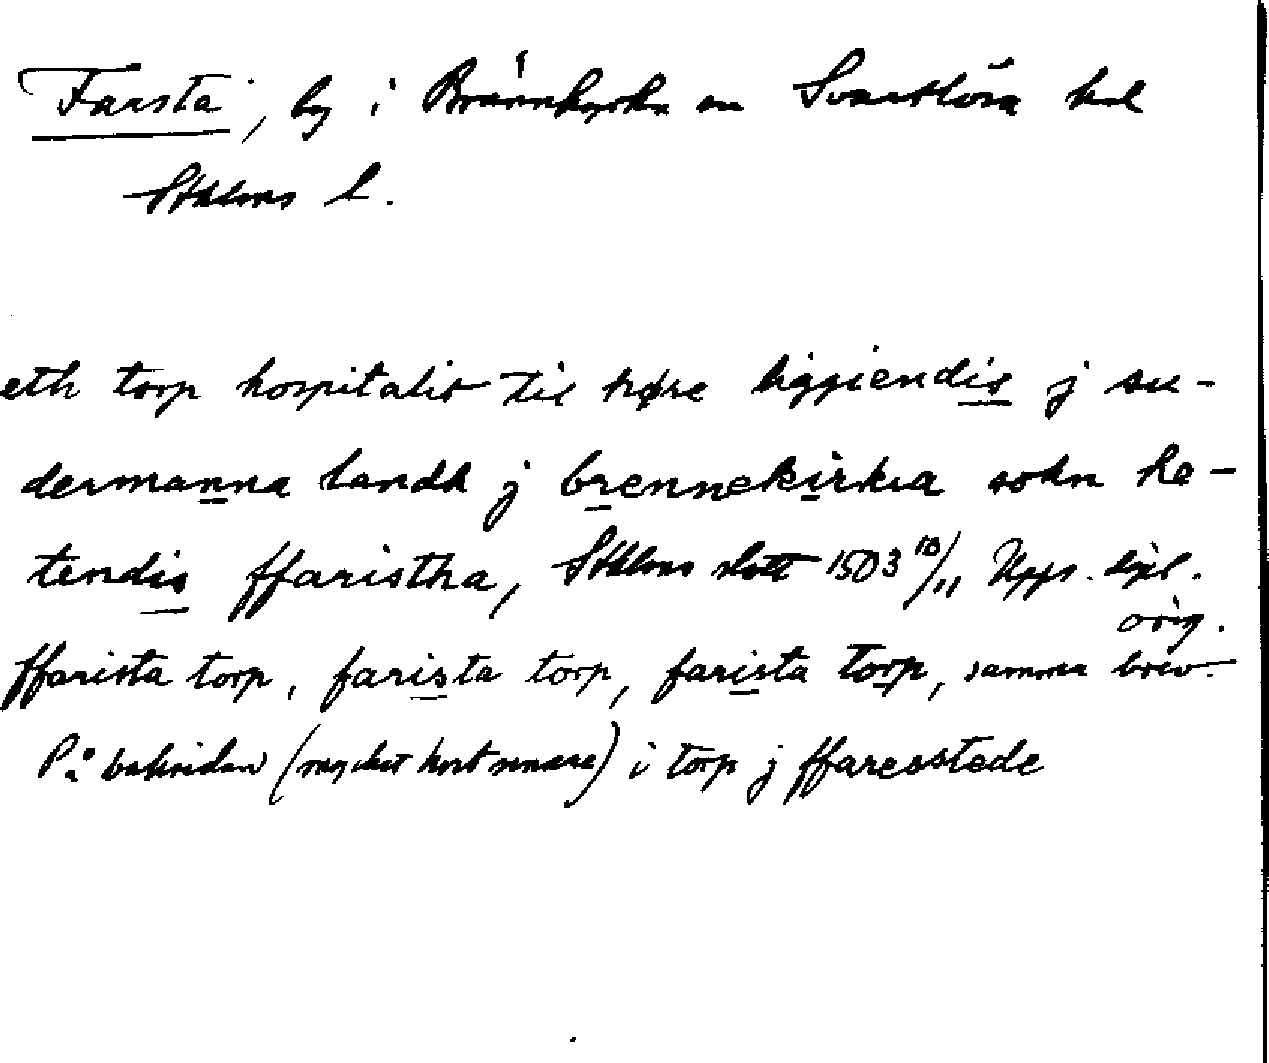 Farsta, by i Brännkyrka sn Svartlösa hd
Sthlms l.
eth torp hospitalit til høre liggiendis j su-
dermanna landh j brennekirkia sokn he-
tendis ffaristha, Sthlms slott 1503 10/11 Upps. dipl.
orig.
ffarista torp, farista torp, farista torp, samma brev.
På baksidan (mycket kort senare) i torp j ffaresstede